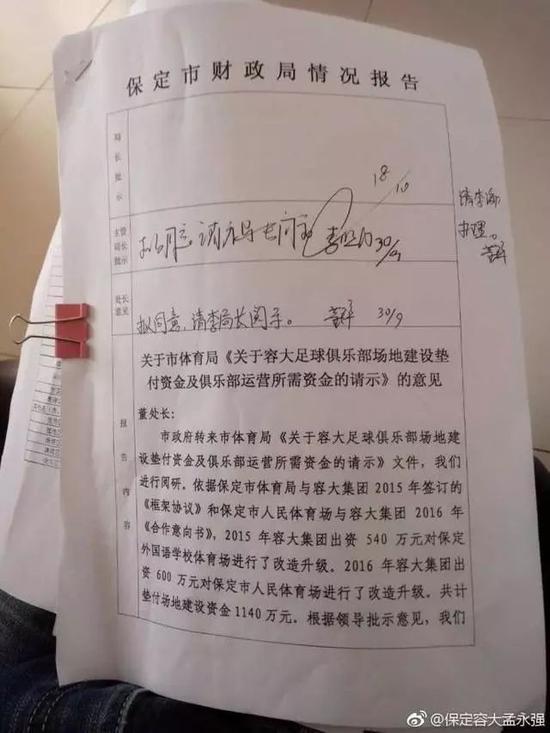 保定市财政局情况报告
局长批示
18/10
主管局长批示
30/9
请李
办理。
处长意见
拟同意,请李局长阅示。
30/9
关于市体育局《关于容大足球俱乐部场地建设垫
付资金及俱乐部运营所需资金的请示》的意见
报告内容
董处长:
市政府转来市体育局《关于容大足球俱乐部场地建
设垫付资金及俱乐部运营所需资金的请示》文件,我们
进行阅研。依据保定市体育局与容大集团 2015 年签订的
《框架协议》和保定市人民体育场与容大集团 2016 年
《合作意向书》,2015 年容大集团出资 540 万元对保定
外国语学校体育场进行了改造升级。2016 年容大集团出
资 600 万元对保定市人民体育场进行了改造升级。共计
垫付场地建设资金 1140 万元。根据领导批示意见,我们
@保定容大孟永强